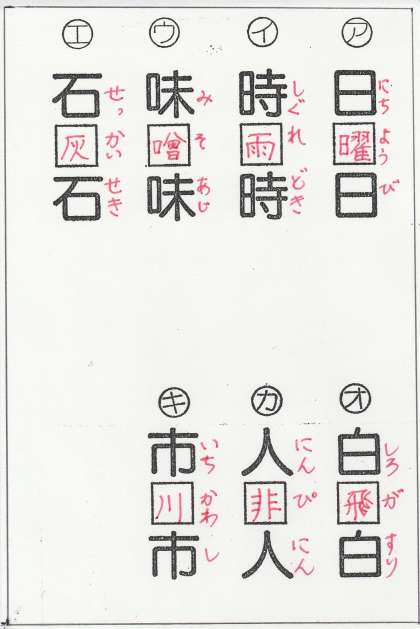 ㋐
日曜日
にちようび
㋑
時雨時
しぐれどき
㋒
味噌味
みそあじ
㋓
石灰石
せっかいせき
㋔
白飛白
しろがすり
㋕
人非人
にんぴにん
㋖
市川市
いちかわし